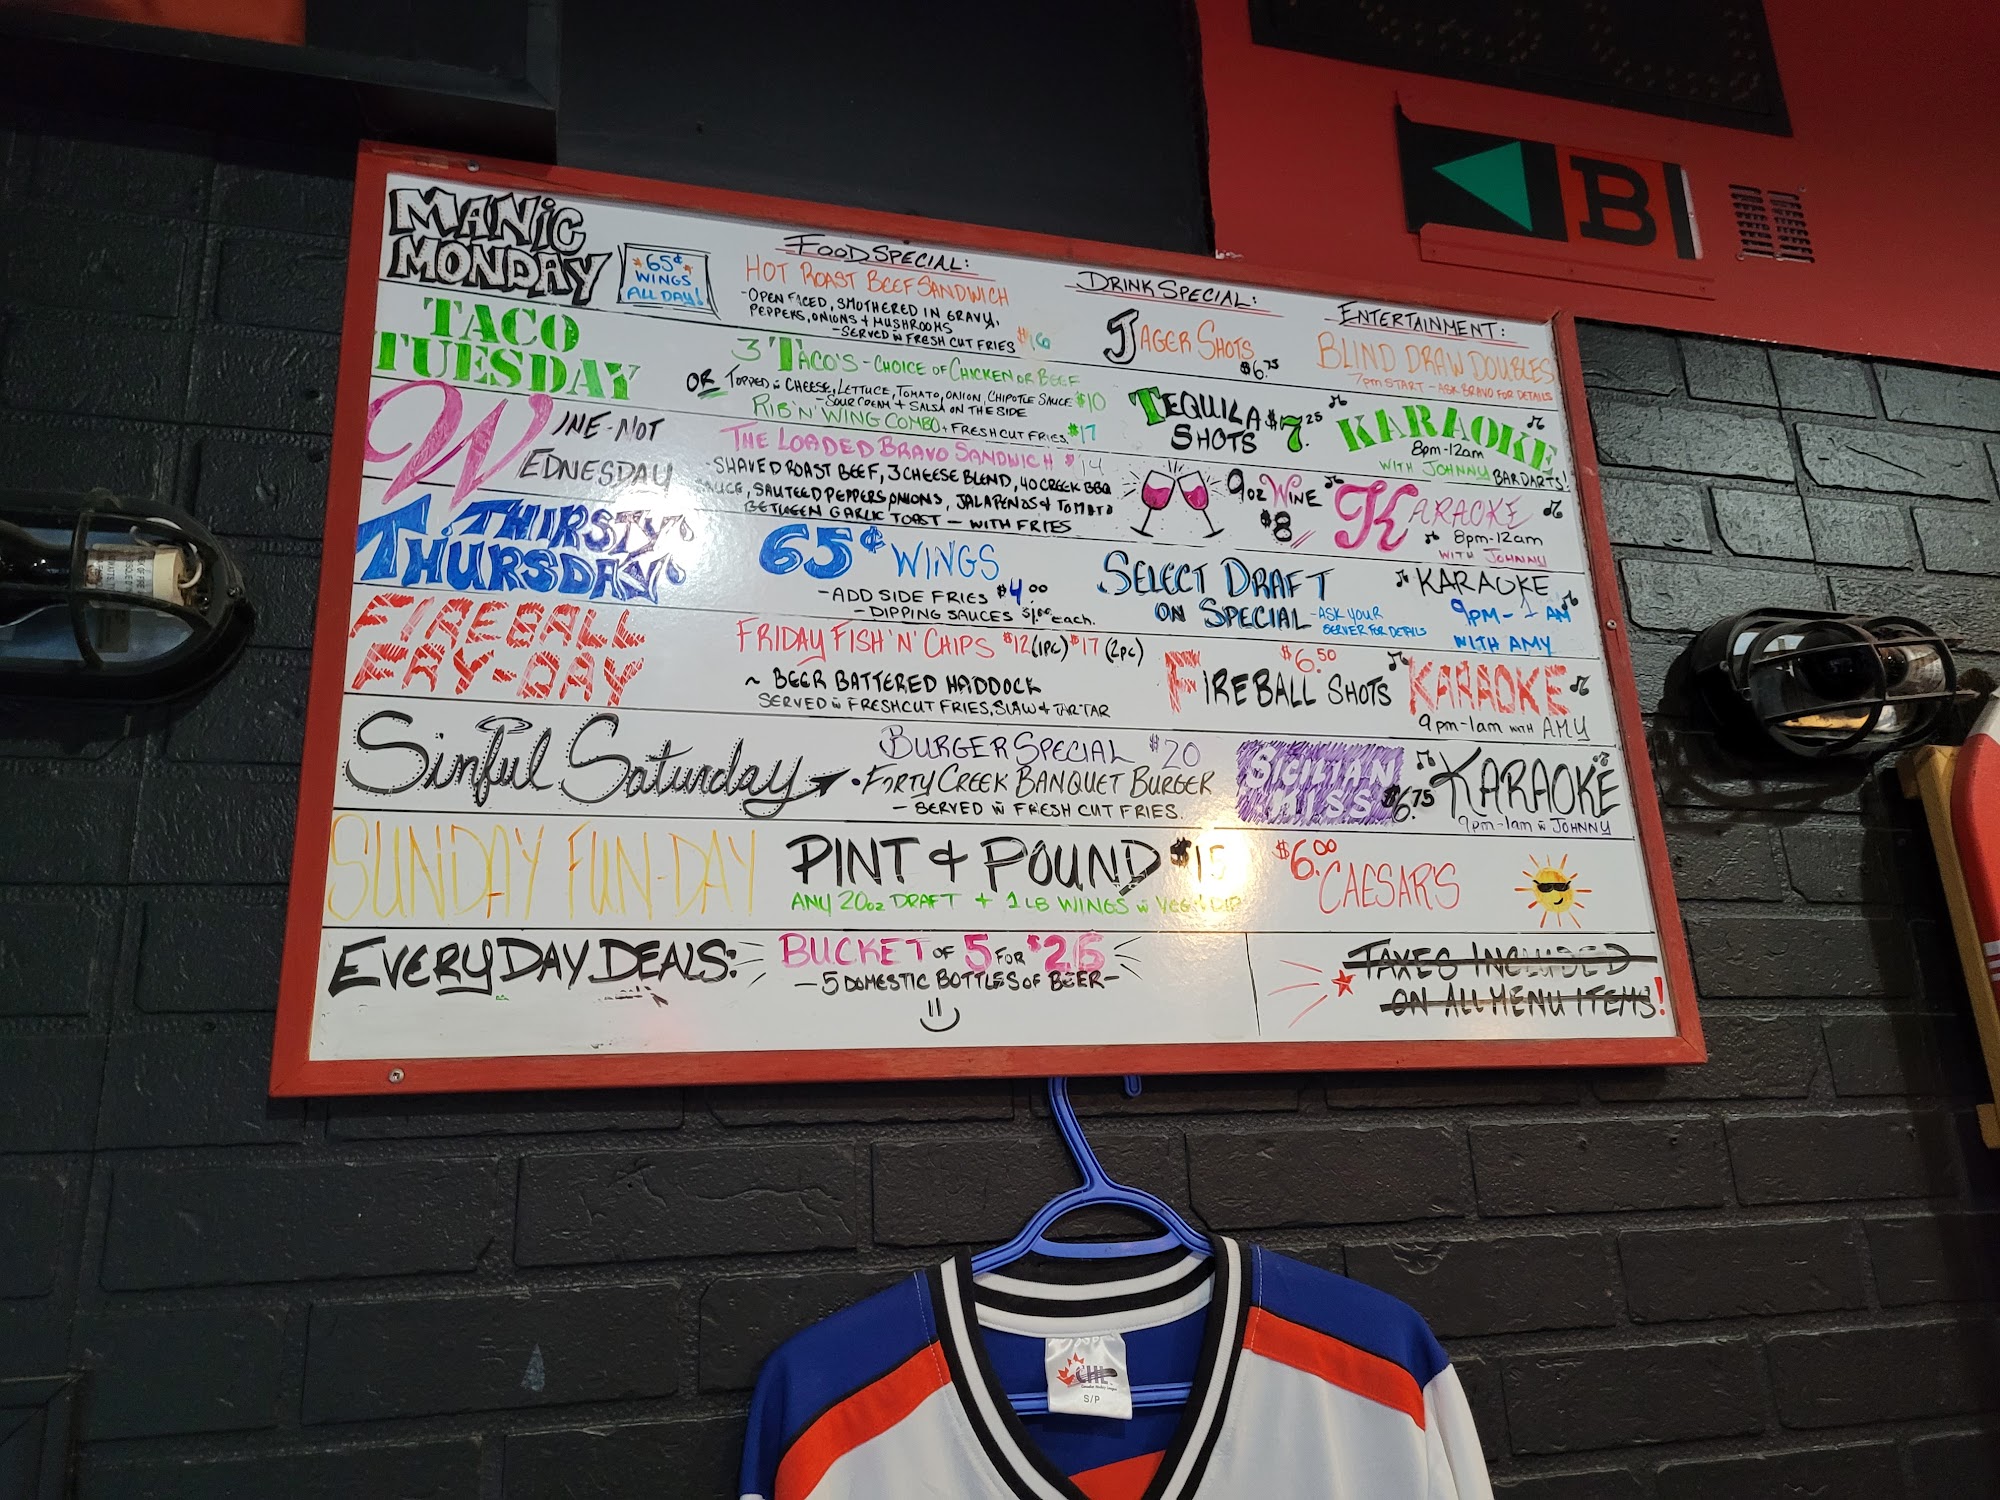 MANIC
MONDAY
65¢
WINGS
ALL DAY!
FOOD SPECIAL:
HOT ROAST BEEF SANDWICH
-OPEN FACED, SMOTHERED IN GRAVY,
PEPPERS, ONIONS + MUSHROOMS
-SERVED w FRESH CUT FRIES $16
DRINK SPECIAL:
JAGER SHOTS
$6.75
ENTERTAINMENT:
BLIND DRAW DOUBLES
7pm START - ASK BRAVO FOR DETAILS
TACO
TUESDAY
3 TACO'S - CHOICE OF CHICKEN OR BEEF
TOPPED w CHEESE, LETTUCE, TOMATO, ONION, CHIPOTLE SAUCE $10
-SOUR CREAM + SALSA ON THE SIDE
OR RIB 'N' WING COMBO + FRESH CUT FRIES $17
TEQUILA
SHOTS $7.25
KARAOKE
8pm-12am
WITH JOHNNY BAR DARTS!
WINE-NOT
WEDNESDAY
THE LOADED BRAVO SANDWICH $14
-SHAVED ROAST BEEF, 3 CHEESE BLEND, 40 CREEK BBQ
SAUCE, SAUTEED PEPPERS ONIONS, JALAPENOS + TOMATO
BETWEEN GARLIC TOAST - WITH FRIES
9oz WINE
$8
KARAOKE
8pm-12am
WITH JOHNNY
THIRSTY
THURSDAY
65¢ WINGS
-ADD SIDE FRIES $4.00
-DIPPING SAUCES $1.00 each.
SELECT DRAFT
ON SPECIAL -ASK YOUR
SERVER FOR DETAILS
KARAOKE
9PM-1AM
WITH AMY
FIREBALL
FRY-DAY
FRIDAY FISH 'N' CHIPS $12 (1pc) $17 (2pc)
~ BEER BATTERED HADDOCK
SERVED w FRESHCUT FRIES, SLAW + TARTAR
$6.50
FIREBALL SHOTS
KARAOKE
9pm-1am WITH AMY
Sinful Saturday
BURGER SPECIAL $20
• FORTY CREEK BANQUET BURGER
- SERVED w FRESH CUT FRIES.
SICILIAN
KISS $6.75
KARAOKE
9pm-1am w JOHNNY
SUNDAY FUN-DAY
PINT + POUND
ANY 20oz DRAFT + 1 LB WINGS w
$6.00
CAESAR'S
EVERYDAY DEALS:
BUCKET OF 5 FOR $26
-5 DOMESTIC BOTTLES OF BEER-
TAXES INCLUDED
ON ALL MENU ITEMS!
B
CHL
S/P